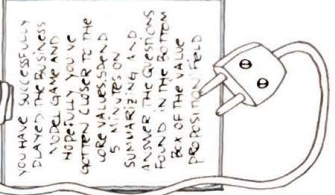 YOU HAVE SUCCESSFULLY
PLAYED THE BUSINESS
MODEL GAME AND
HOPEFULLY YOU'VE
GOTTEN CLOSER TO THE
CORE VALUES. SPEND
5 MINUTES ON
SUMMARIZING AND
ANSWER THE QUESTIONS
FOUND IN THE BOTTOM
BOX OF THE VALUE
PROPOSITION FIELD